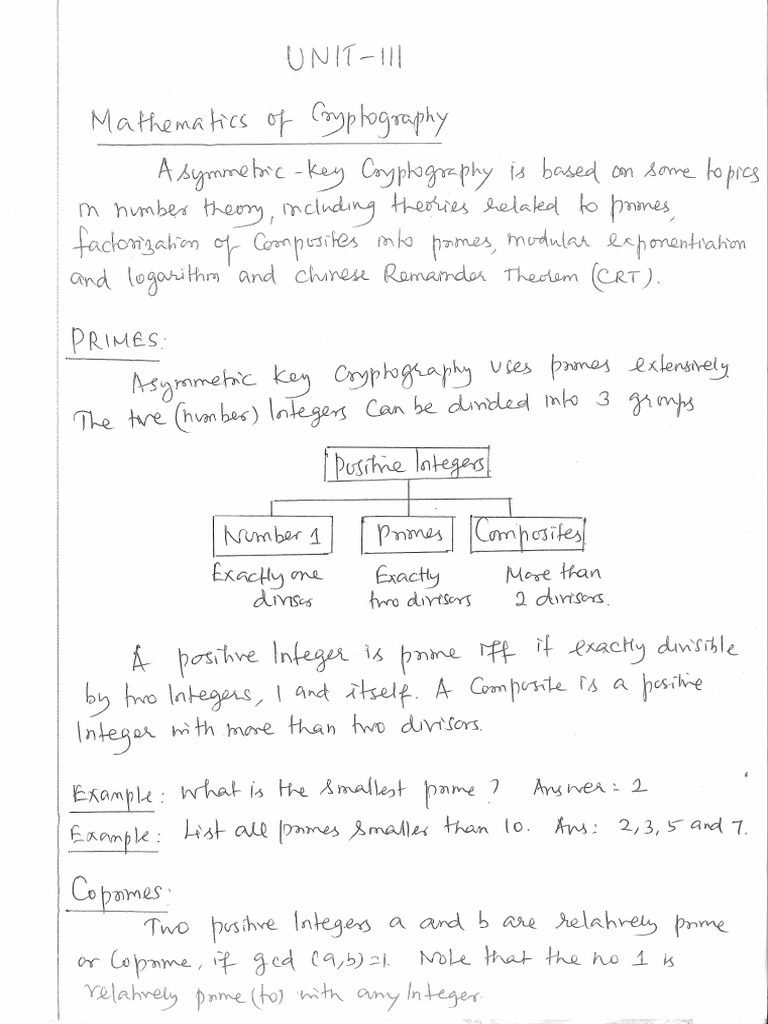 UNIT-III
Mathematics of Cryptography
Asymmetric-key Cryptography is based on some topics
in number theory, including theories related to primes,
factorization of Composites into primes, modular exponentiation
and logarithm and chinese Remainder Theorem (CRT).
PRIMES:
Asymmetric key Cryptography uses primes extensively.
The tve (number) Integers Can be divided into 3 groups
Positive Integers
Number 1 Primes Composites
Exactly one Exactly More than
divisor two divisors 2 divisors.
A positive Integer is prime iff it exactly divisible
by two Integers, 1 and itself. A Composite is a positive
Integer with more than two divisors.
Example: What is the smallest prime? Answer: 2
Example: List all primes smaller than 10. Ans: 2,3,5 and 7.
Coprimes:
Two positive Integers a and b are relatively prime
or Coprime, if gcd (a,b)=1. Note that the no 1 is
relatively prime (to) with any Integer.